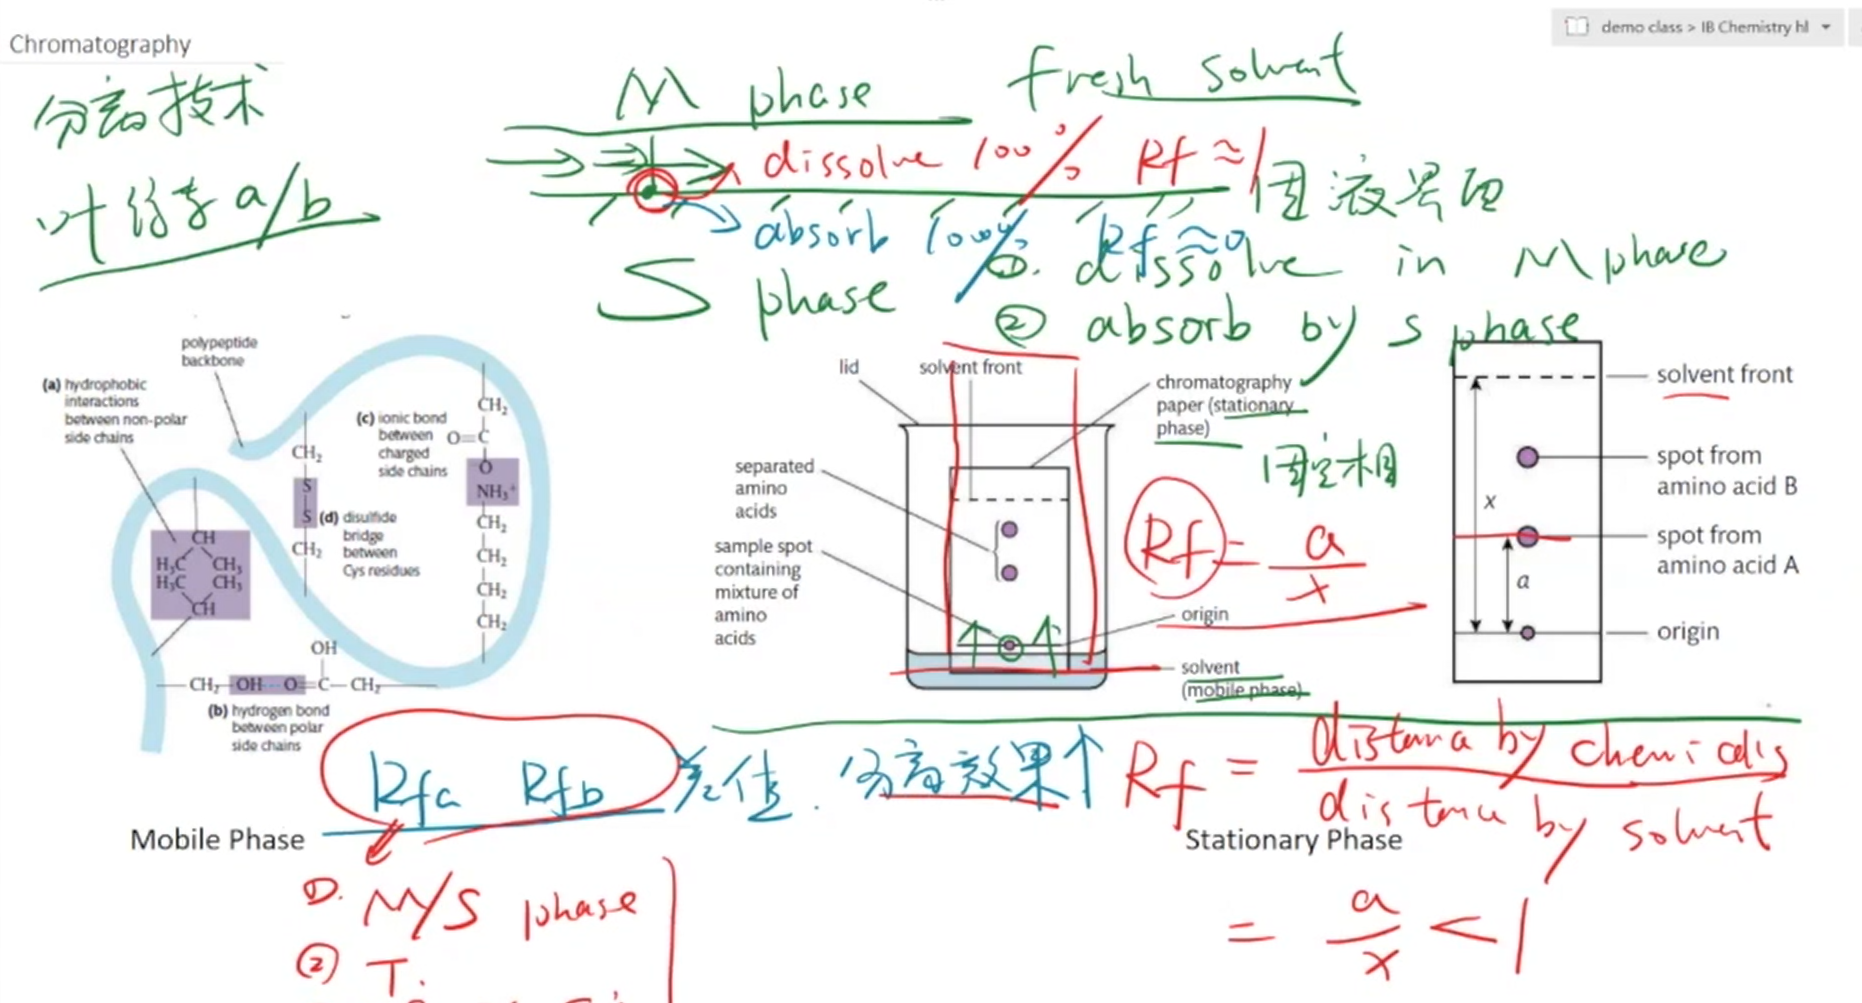 demo class > IB Chemistry hl
Chromatography
分离技术
叶绿素 a/b
M phase
fresh solvent
dissolve 100%
Rf ≈ 1
固液界面
absorb 100%
Rf ≈ 0
S phase
①. dissolve in M phase
② absorb by S phase
polypeptide
backbone
(a) hydrophobic
interactions
between non-polar
side chains
(c) ionic bond
between
charged
side chains
CH₂
O=C
O
NH₃⁺
CH₂
CH₂
CH₂
CH₂
CH₂
S
S
CH₂
(d) disulfide
bridge
between
Cys residues
CH
H₃C CH₃
H₃C CH₃
CH
OH
CH₂ OH O=C—CH₂
(b) hydrogen bond
between polar
side chains
lid
solvent front
chromatography
paper (stationary
phase)
固定相
separated
amino
acids
sample spot
containing
mixture of
amino
acids
origin
solvent
(mobile phase)
Rf = a/x
solvent front
spot from
amino acid B
x
spot from
amino acid A
a
origin
Rfa Rfb 差值. 分离效果↑
Rf = distance by chemicals
distance by solvent
Mobile Phase
Stationary Phase
①. M/S phase
② T.
= a/x < 1